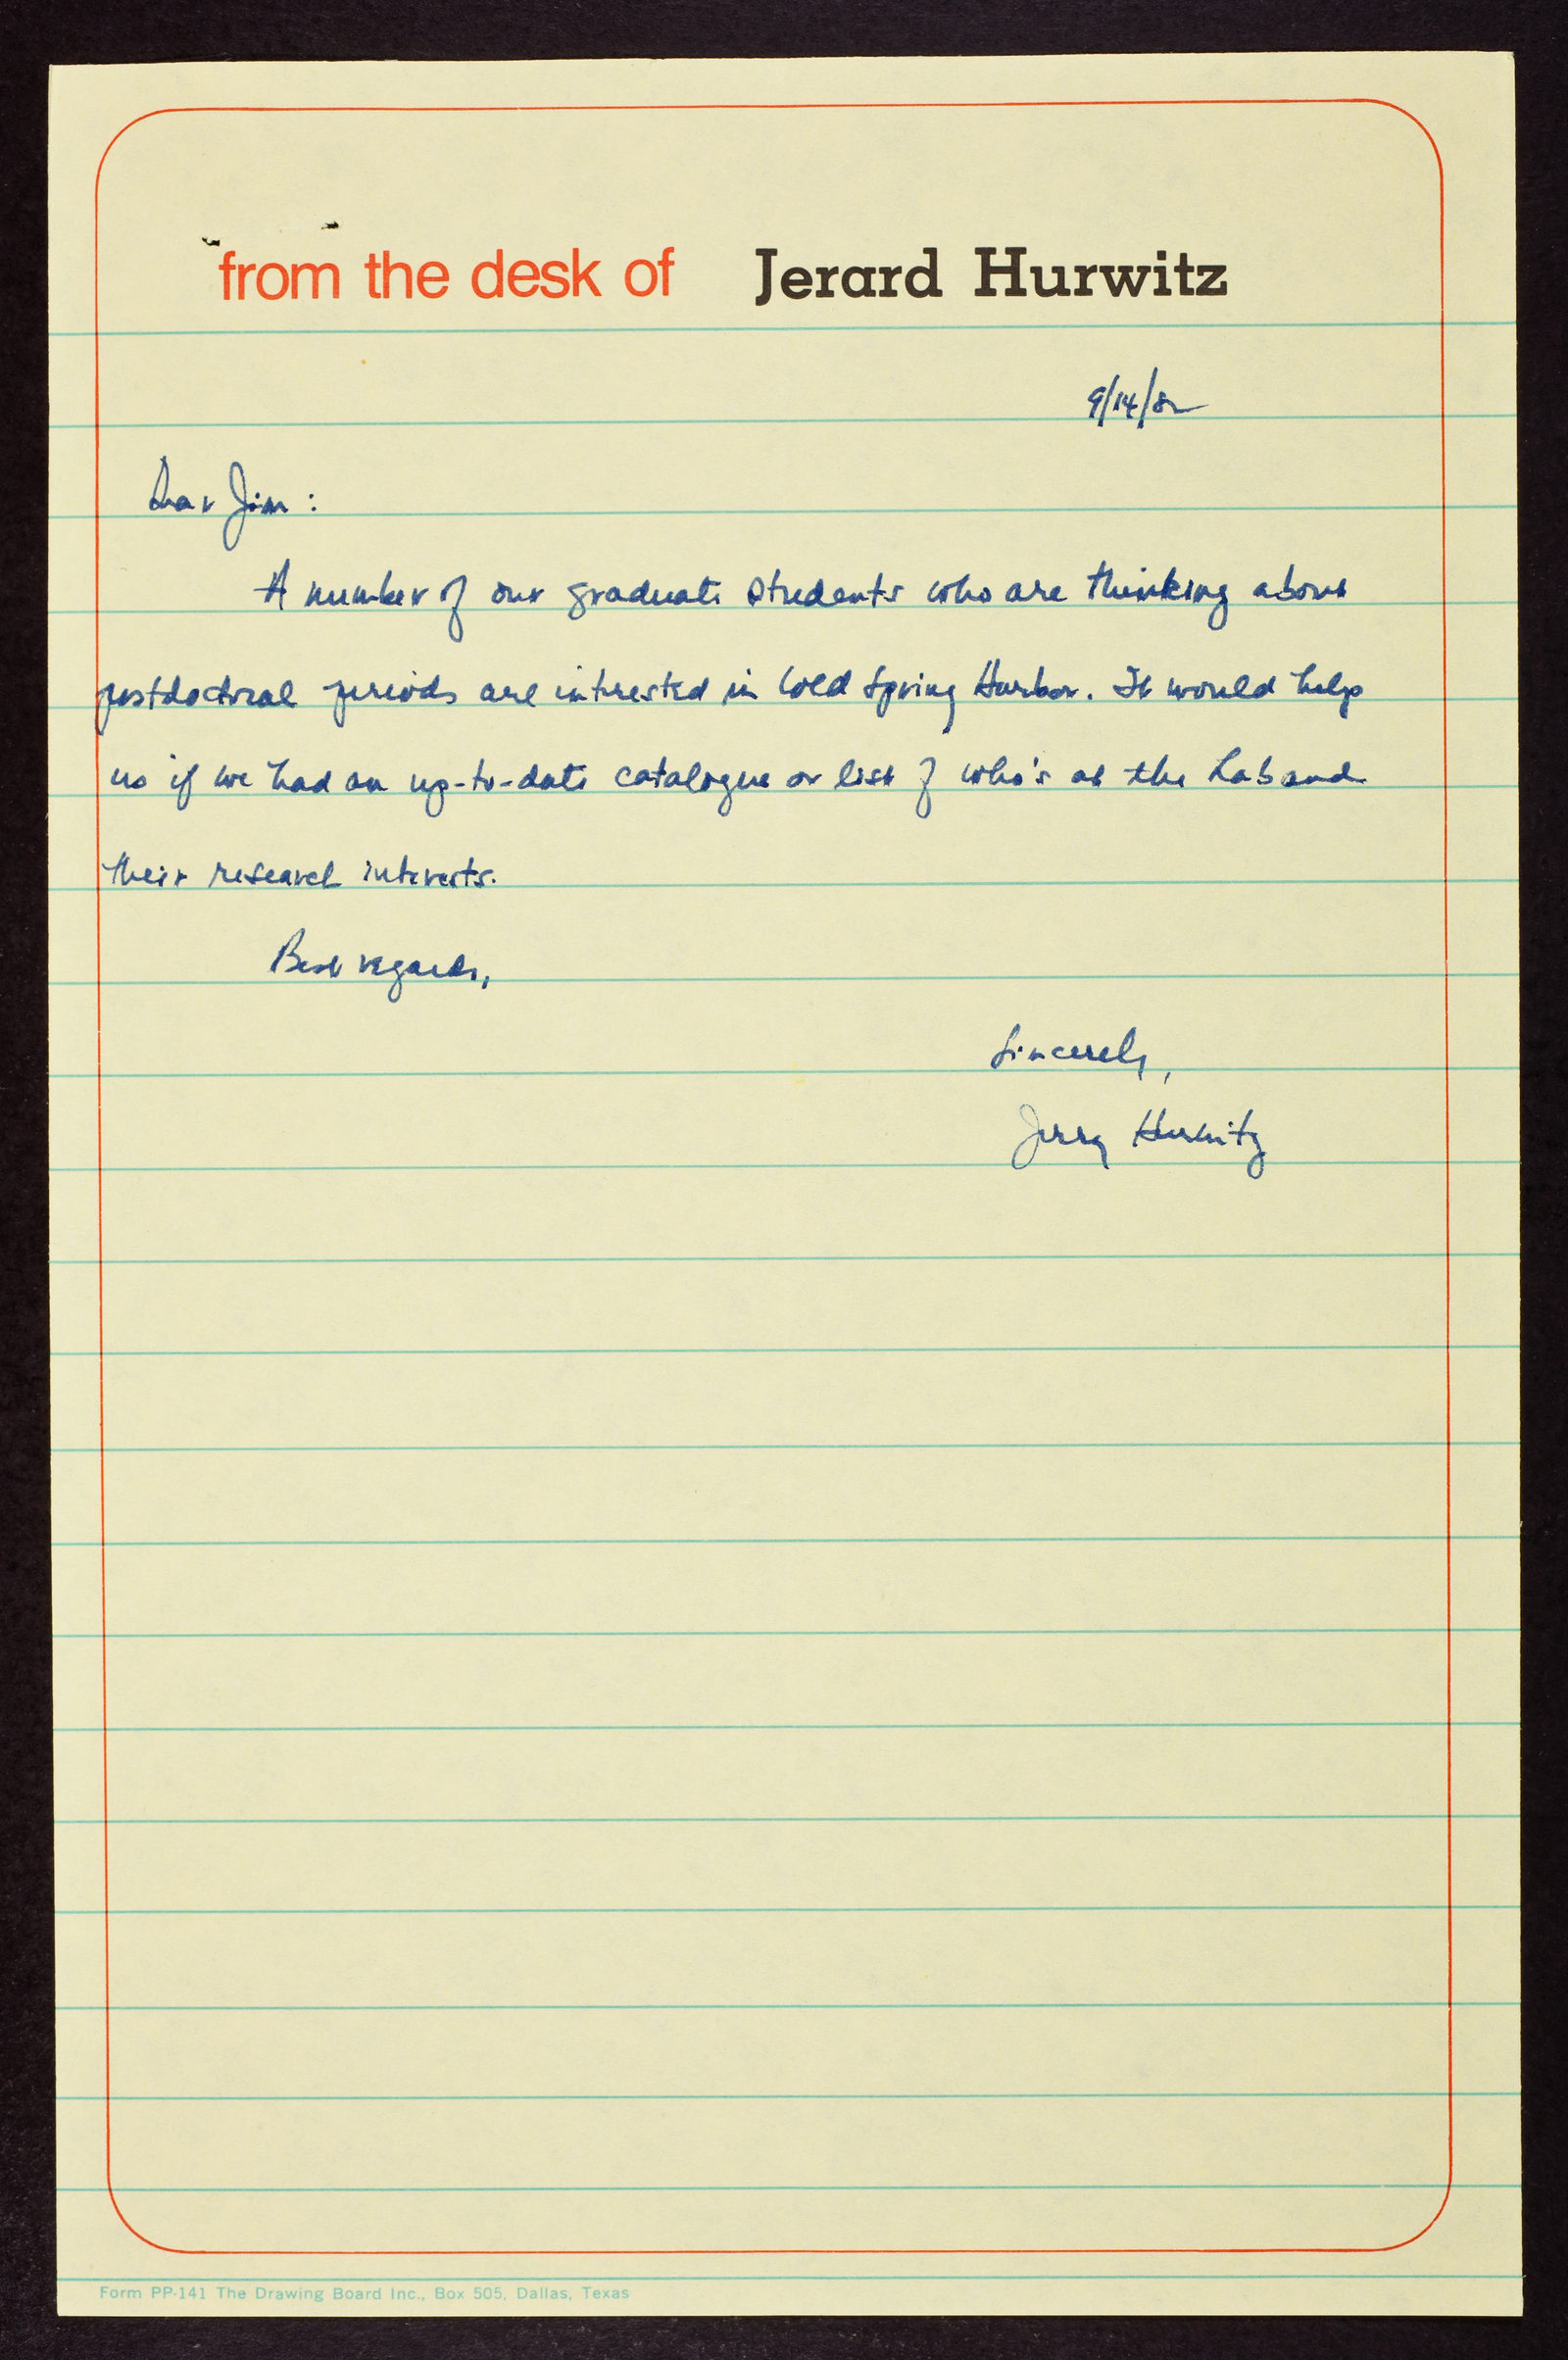 from the desk of Jerard Hurwitz
9/14/82
Dear Jim:
A number of our graduate students who are thinking about
postdoctoral periods are intrested in Cold Spring Harbor. It would help
us if we had an up-to-date catalogue or list of who's at the Lab and
their research interests.
Best regards,
Sincerely,
Jerry Hurwitz
Form PP-141 The Drawing Board Inc., Box 505, Dallas, Texas